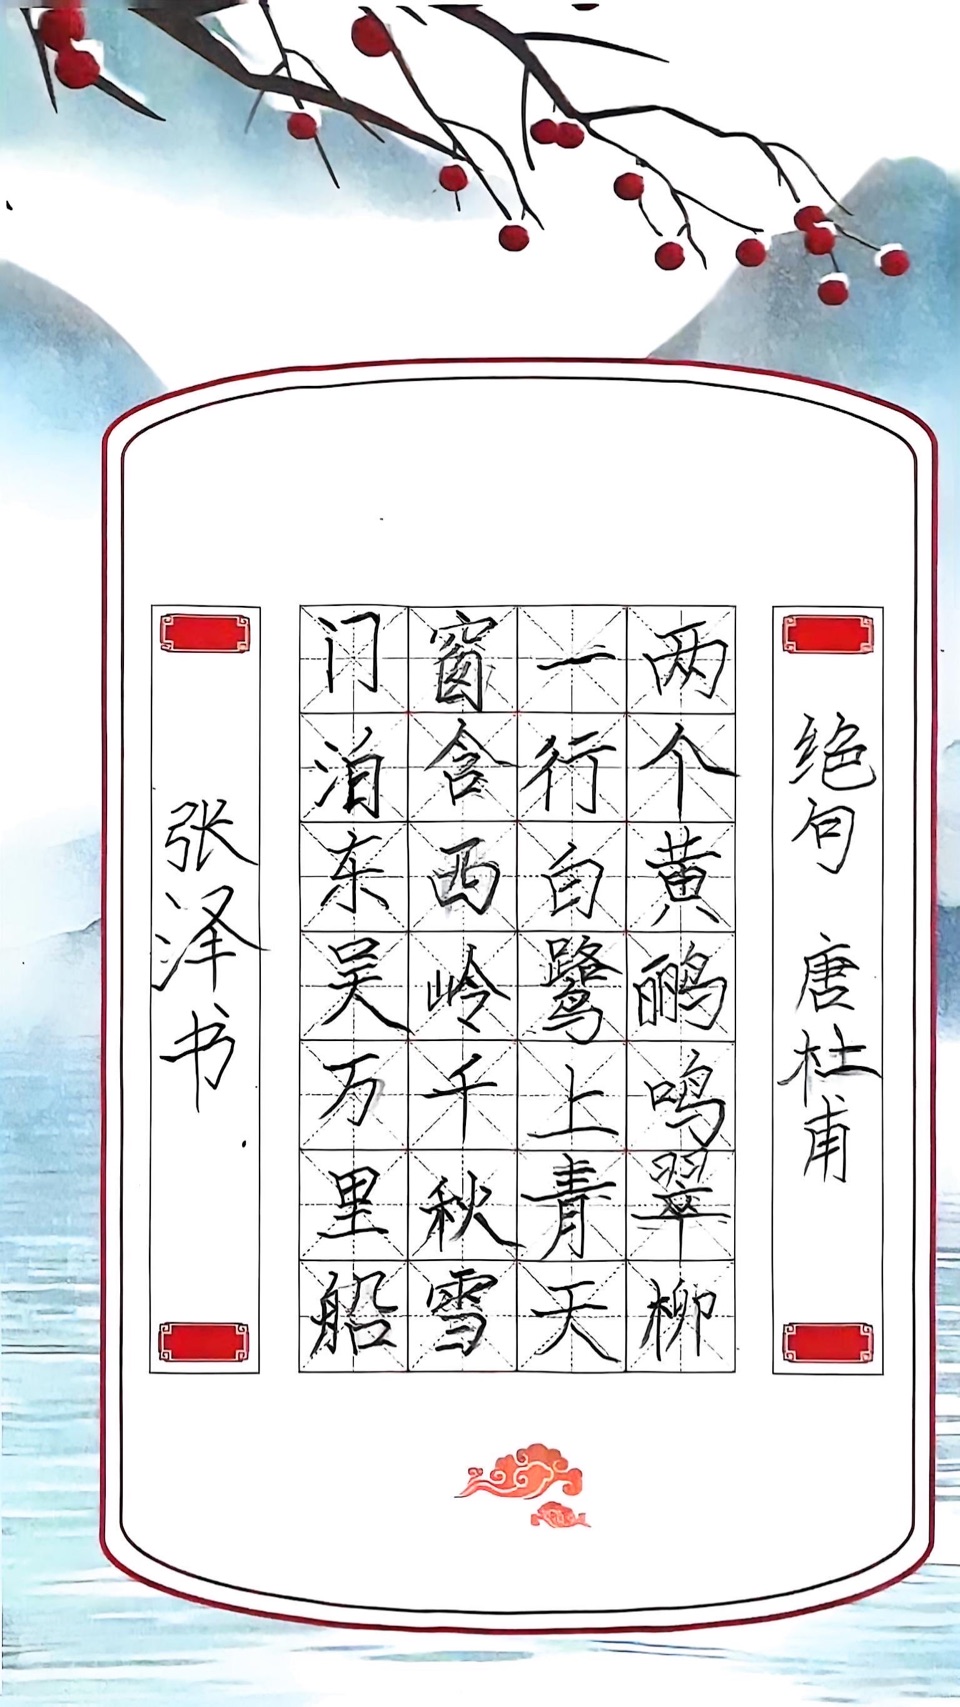 绝句 唐杜甫
两个黄鹂鸣翠柳
一行白鹭上青天
窗含西岭千秋雪
门泊东吴万里船
张泽书